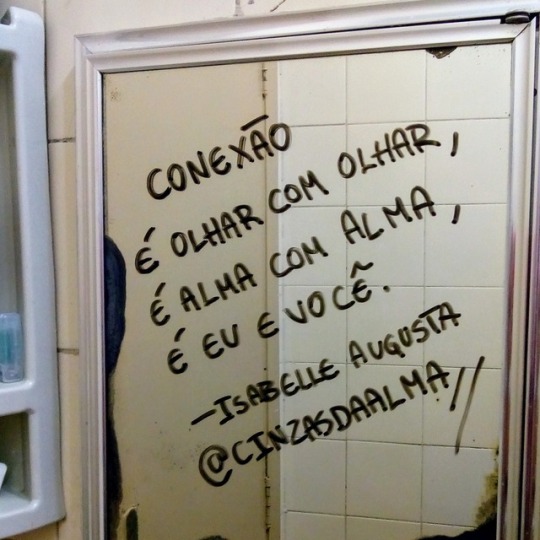 CONEXÃO
É OLHAR COM OLHAR,
É ALMA COM ALMA,
É EU E VOCÊ.
—ISABELLE AUGUSTA
@CINZASDAALMA//